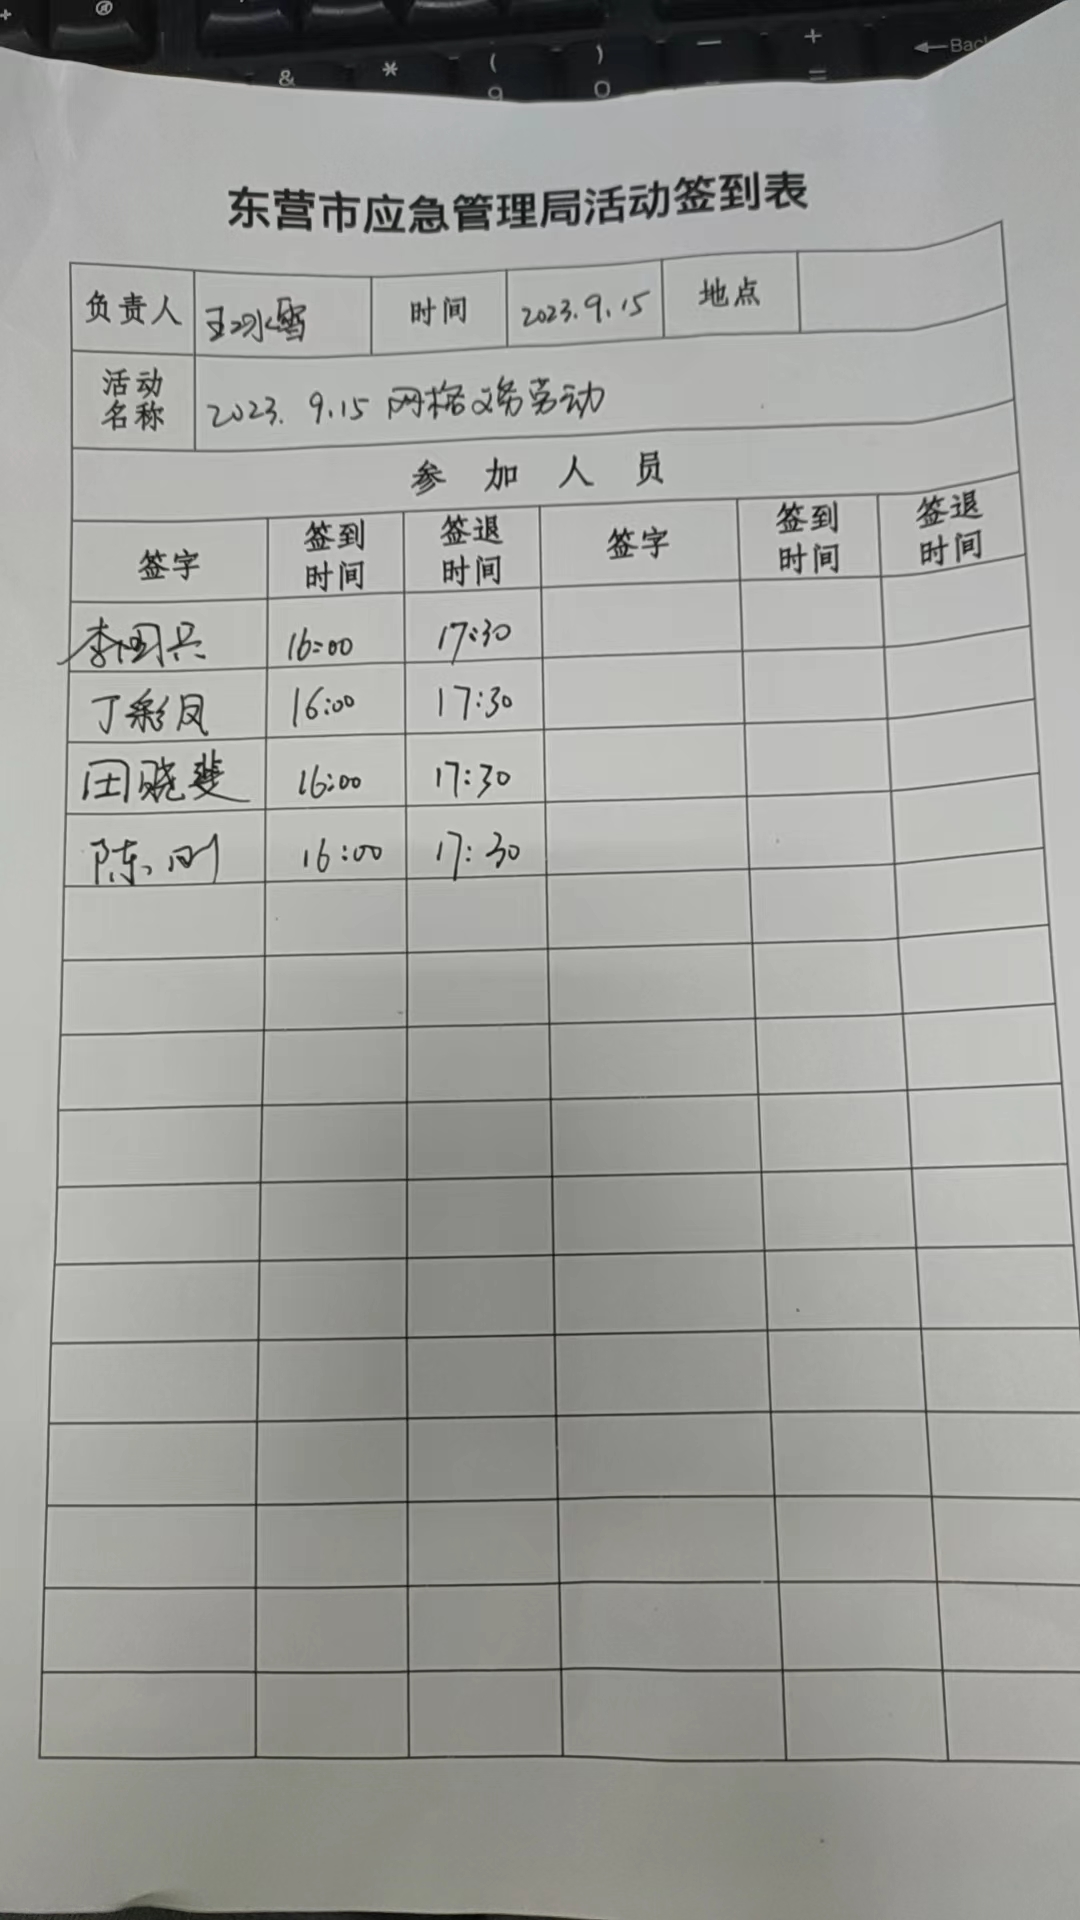 ®
& * ( ) — +
9 0 - = ←Bac
东营市应急管理局活动签到表
负责人 王冰雪 时间 2023.9.15 地点
活动名称 2023. 9.15 网格义务劳动
参加人员
签字 签到时间 签退时间 签字 签到时间 签退时间
李国兵 16:00 17:30
丁彩凤 16:00 17:30
田晓斐 16:00 17:30
陈刚 16:00 17:30